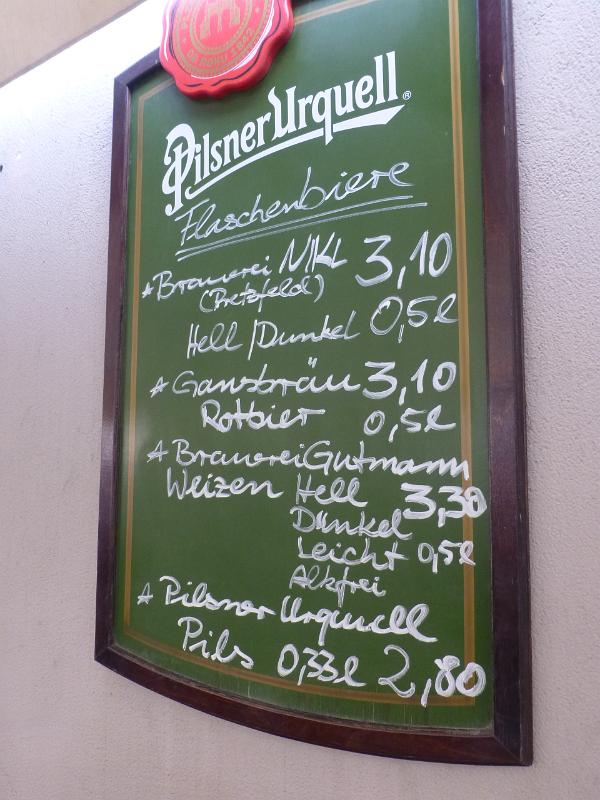 OD ROKU 1842
Pilsner Urquell®
Flaschenbiere
Brauerei NIKL 3,10
(Pretzfeld)
Hell/Dunkel 0,5l
Gansbräu 3,10
Rotbier 0,5l
Brauerei Gutmann
Weizen Hell 3,30
Dunkel
Leicht 0,5l
Alkfrei
Pilsner Urquell
Pils 0,33l 2,80